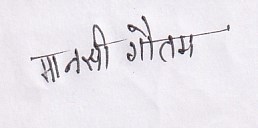 मानसी गौतम